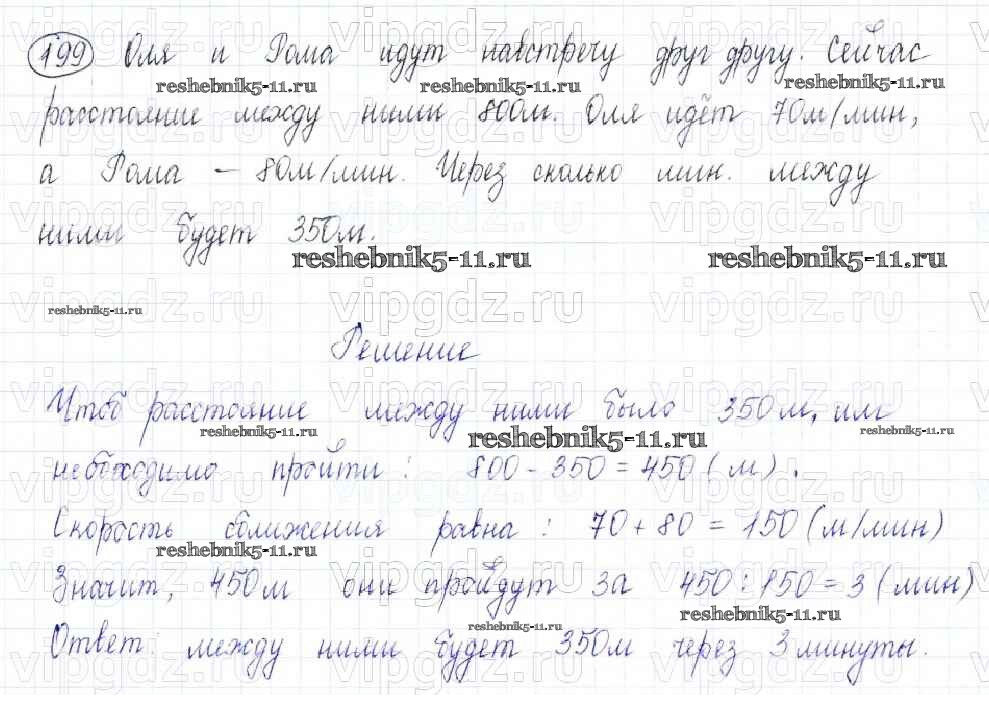 199 Оля и Рома идут навстречу друг другу. Сейчас
reshebnik5-11.ru reshebnik5-11.ru reshebnik5-11.ru
расстояние между ними 800м. Оля идёт 70м/мин,
а Рома - 80м/мин. Через сколько мин. между
ними будет 350м.
reshebnik5-11.ru reshebnik5-11.ru
reshebnik5-11.ru
Решение
Чтоб расстояние между ними было 350м, им
reshebnik5-11.ru reshebnik5-11.ru reshebnik5-11.ru
необходимо пройти: 800 - 350 = 450 (м).
Скорость сближения равна: 70 + 80 = 150 (м/мин)
reshebnik5-11.ru
Значит, 450м они пройдут за 450 : 150 = 3 (мин)
reshebnik5-11.ru reshebnik5-11.ru
Ответ: между ними будет 350м через 3 минуты.
vipgdz.ru vipgdz.ru vipgdz.ru vipgdz.ru